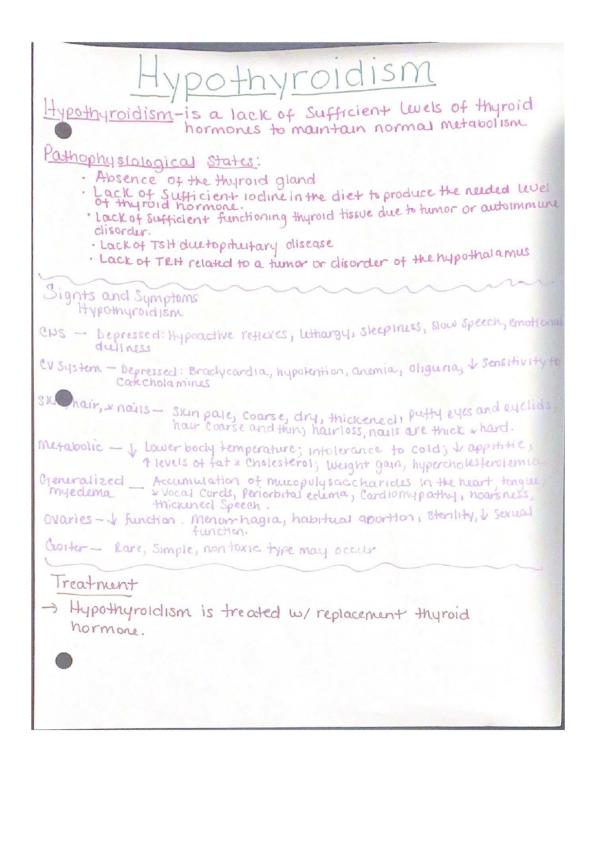 Hypothyroidism
Hypothyroidism - is a lack of Sufficient levels of thyroid
hormones to maintain normal metabolism
Pathophysiological States:
• Absence of the thyroid gland
• Lack of Sufficient Iodine in the diet to produce the needed level
of thyroid hormone.
• Lack of Sufficient functioning thyroid tissue due to tumor or autoimmune
disorder.
• Lack of TSH due to pituitary disease
• Lack of TRH related to a tumor or disorder of the hypothalamus
Signts and Symptoms
Hypothyroidism
CNS — Depressed: Hypoactive reflexes, lethargy, sleepiness, slow speech, emotional
dullness
CV System — Depressed: Bradycardia, hypotention, anemia, oliguria, ↓ sensitivity to
Catecholamines
hair, & nails — Skin pale, coarse, dry, thickened, puffy eyes and eyelids,
hair coarse and thin; hairloss, nails are thick & hard.
Metabolic — ↓ Lower body temperature; intolerance to cold; ↓ appitite,
↑ levels of fat & cholesterol; weight gain, hypercholesterolemia
Generalized — Accumulation of mucopolysaccharides in the heart, tongue,
myedema & vocal cords, Periorbital edema, Cardiomypathy, hoarsness,
thickened speech.
Ovaries — ↓ Function. Menorrhagia, habitual abortion, sterility, ↓ sexual
function.
Goiter — Rare, Simple, non toxic type may occur
Treatment
→ Hypothyroidism is treated w/ replacement thyroid
hormone.